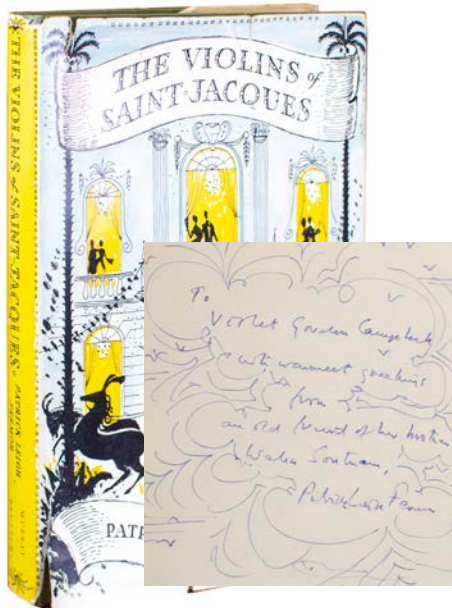 THE VIOLINS of
SAINT-JACQUES
THE VIOLINS of SAINT-JACQUES. PATRICK LEIGH FERMOR
PAT
To
Violet Gordon Campbell
with warmest greetings
from
an old friend of her
Walter
Patrick Leigh Fermor